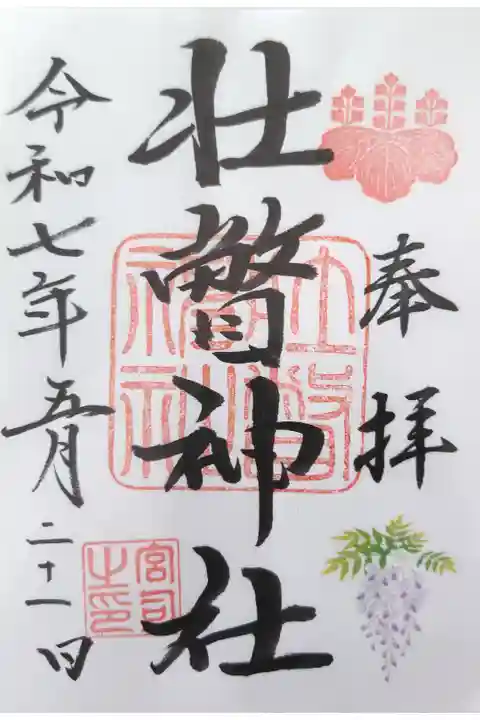 奉拝
壮瞥神社
令和七年五月二十一日
壮瞥神社
宮司之印